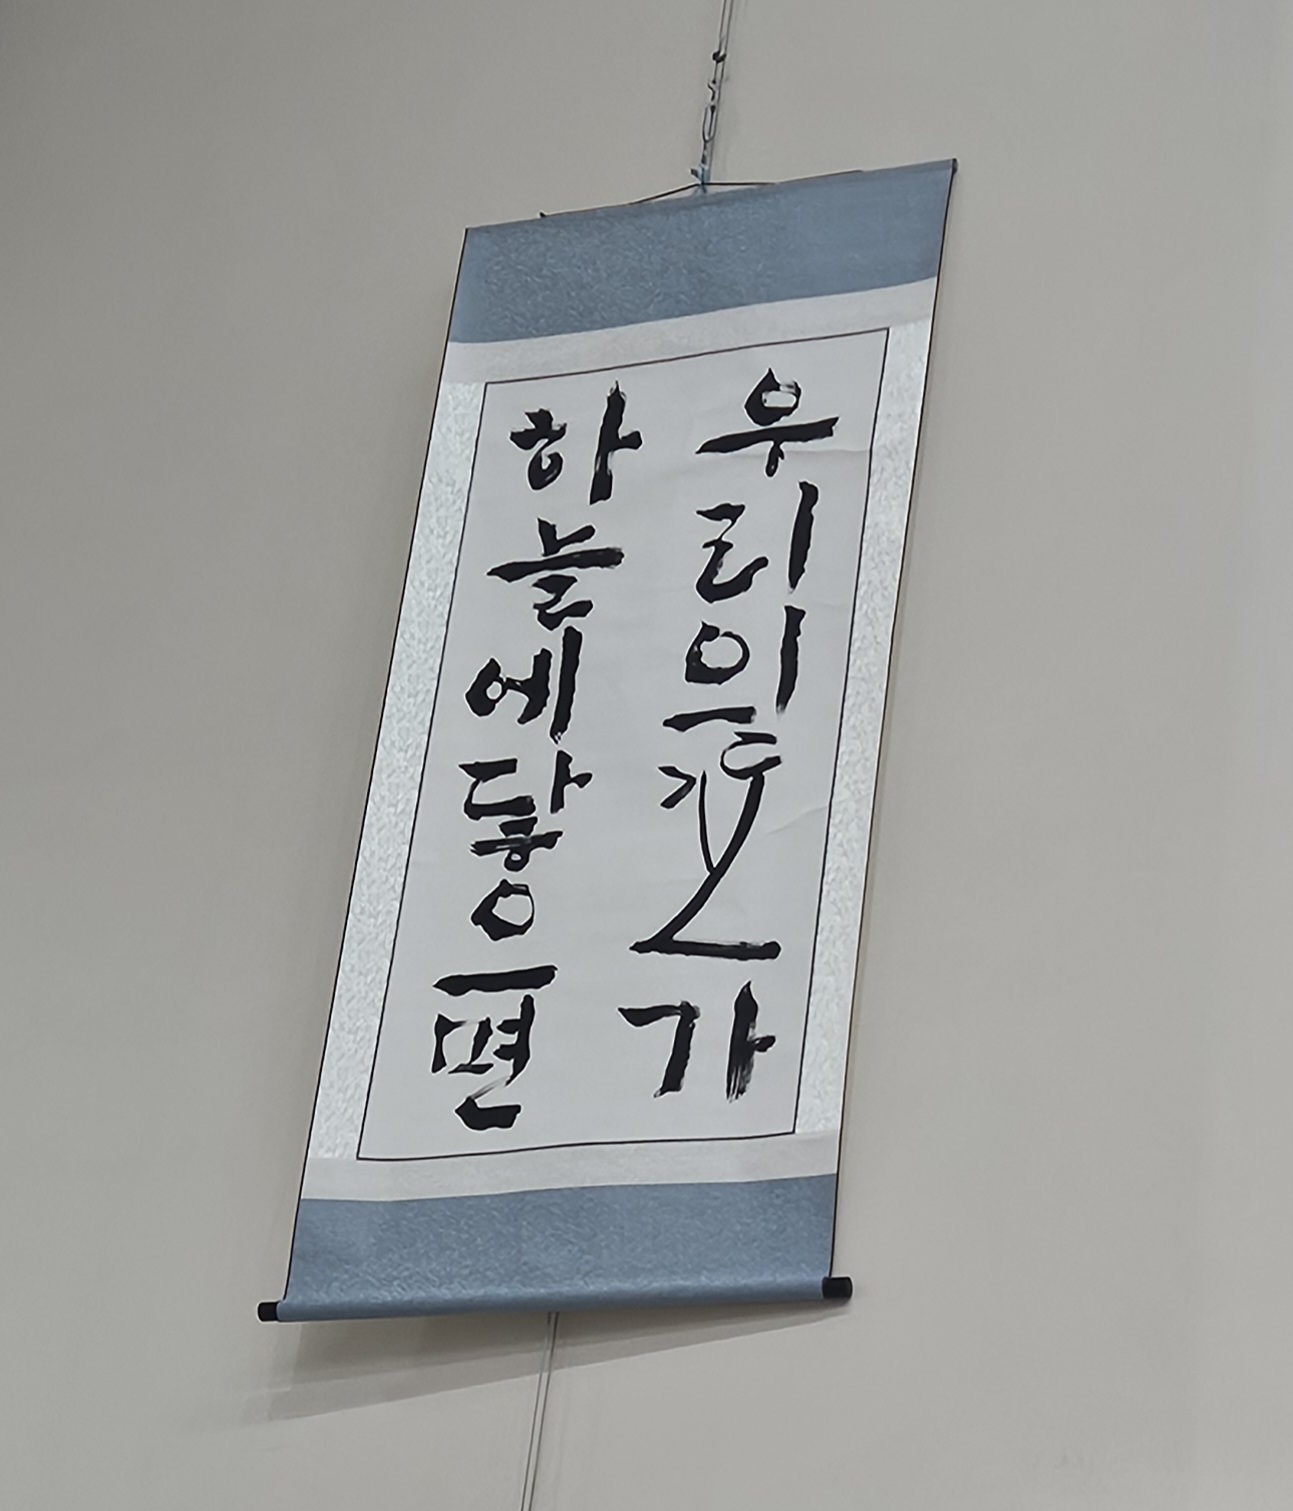 우리의 가
하늘에 닿으면